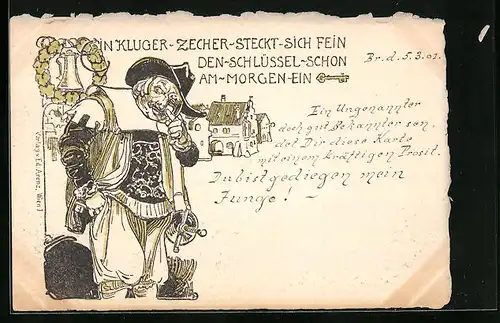 EIN KLUGER-ZECHER-STECKT-SICH FEIN
DEN-SCHLÜSSEL-SCHON
AM-MORGEN-EIN
Br. d. 5.3.01.
Ein Ungenannter
doch gut Bekannter sen-
det Dir diese Karte
mit einem kräftigen Prosit.
Du bist gediegen mein
Junge! —
Verlag v. Ed. Arenz, Wien I